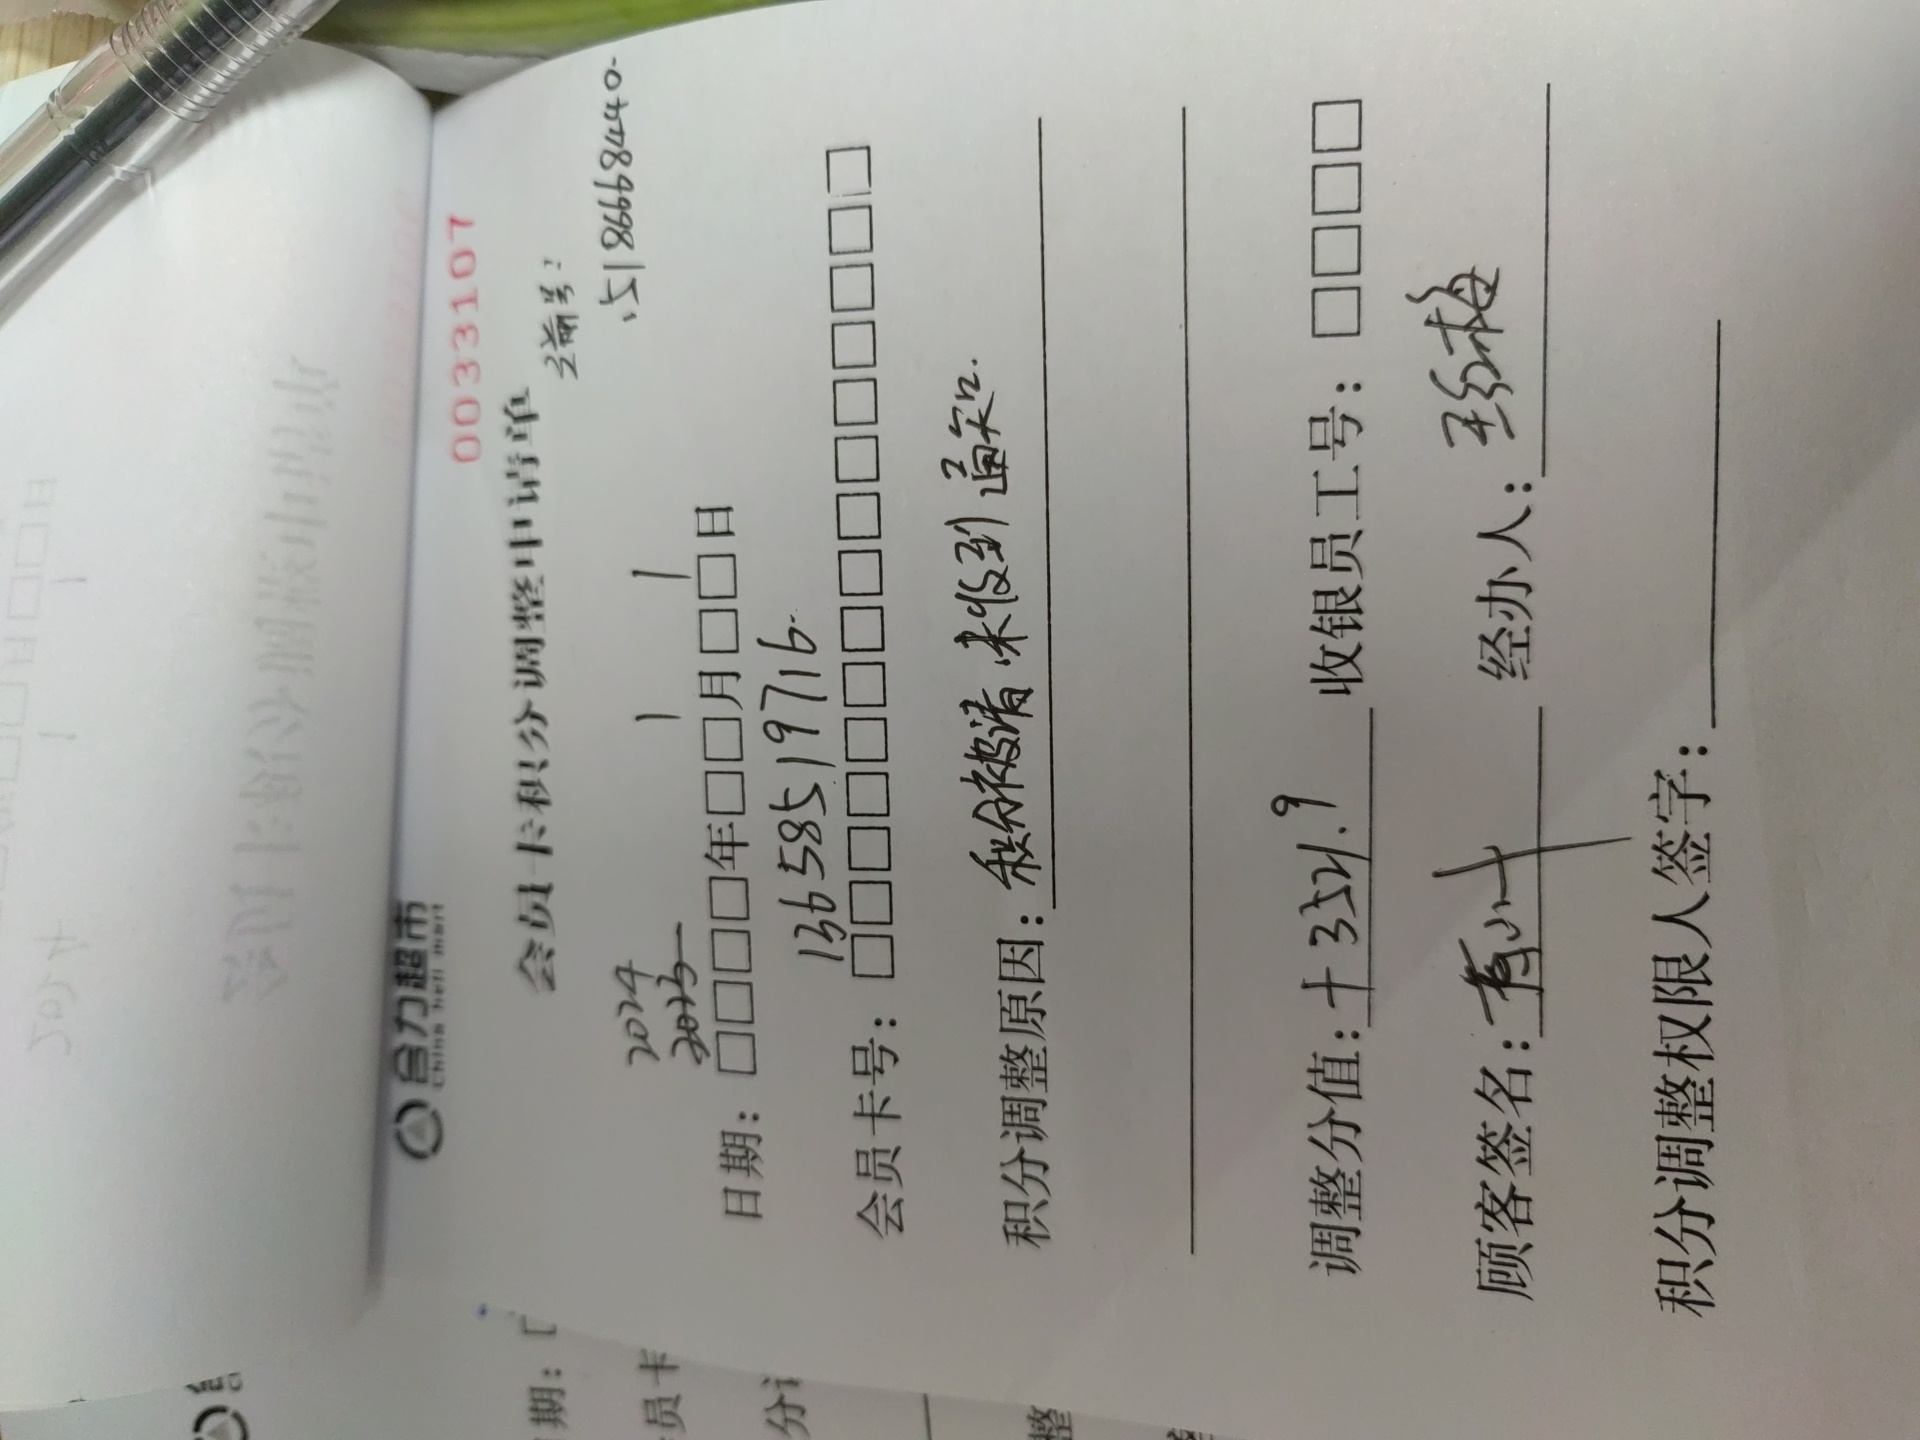 合力超市
China heli mart
0033107
会员卡积分调整申请单
之前号:
15186668440.
2024
2023
1 1
日期：□□□□年□□月□□日
13658519716.
会员卡号：□□□□□□□□□□□□□□□
积分调整原因：积分被清.未收到通知.
调整分值：+3521.9 收银员工号：□□□□
顾客签名： 经办人：
积分调整权限人签字：
期：
员卡
整